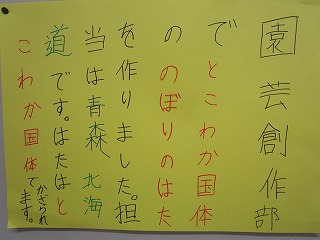 園芸創作部
でとこわか国体
ののぼりのはた
を作りました。担
当は青森、北海
道です。はたはと
こわか国体でかざられ
ます。